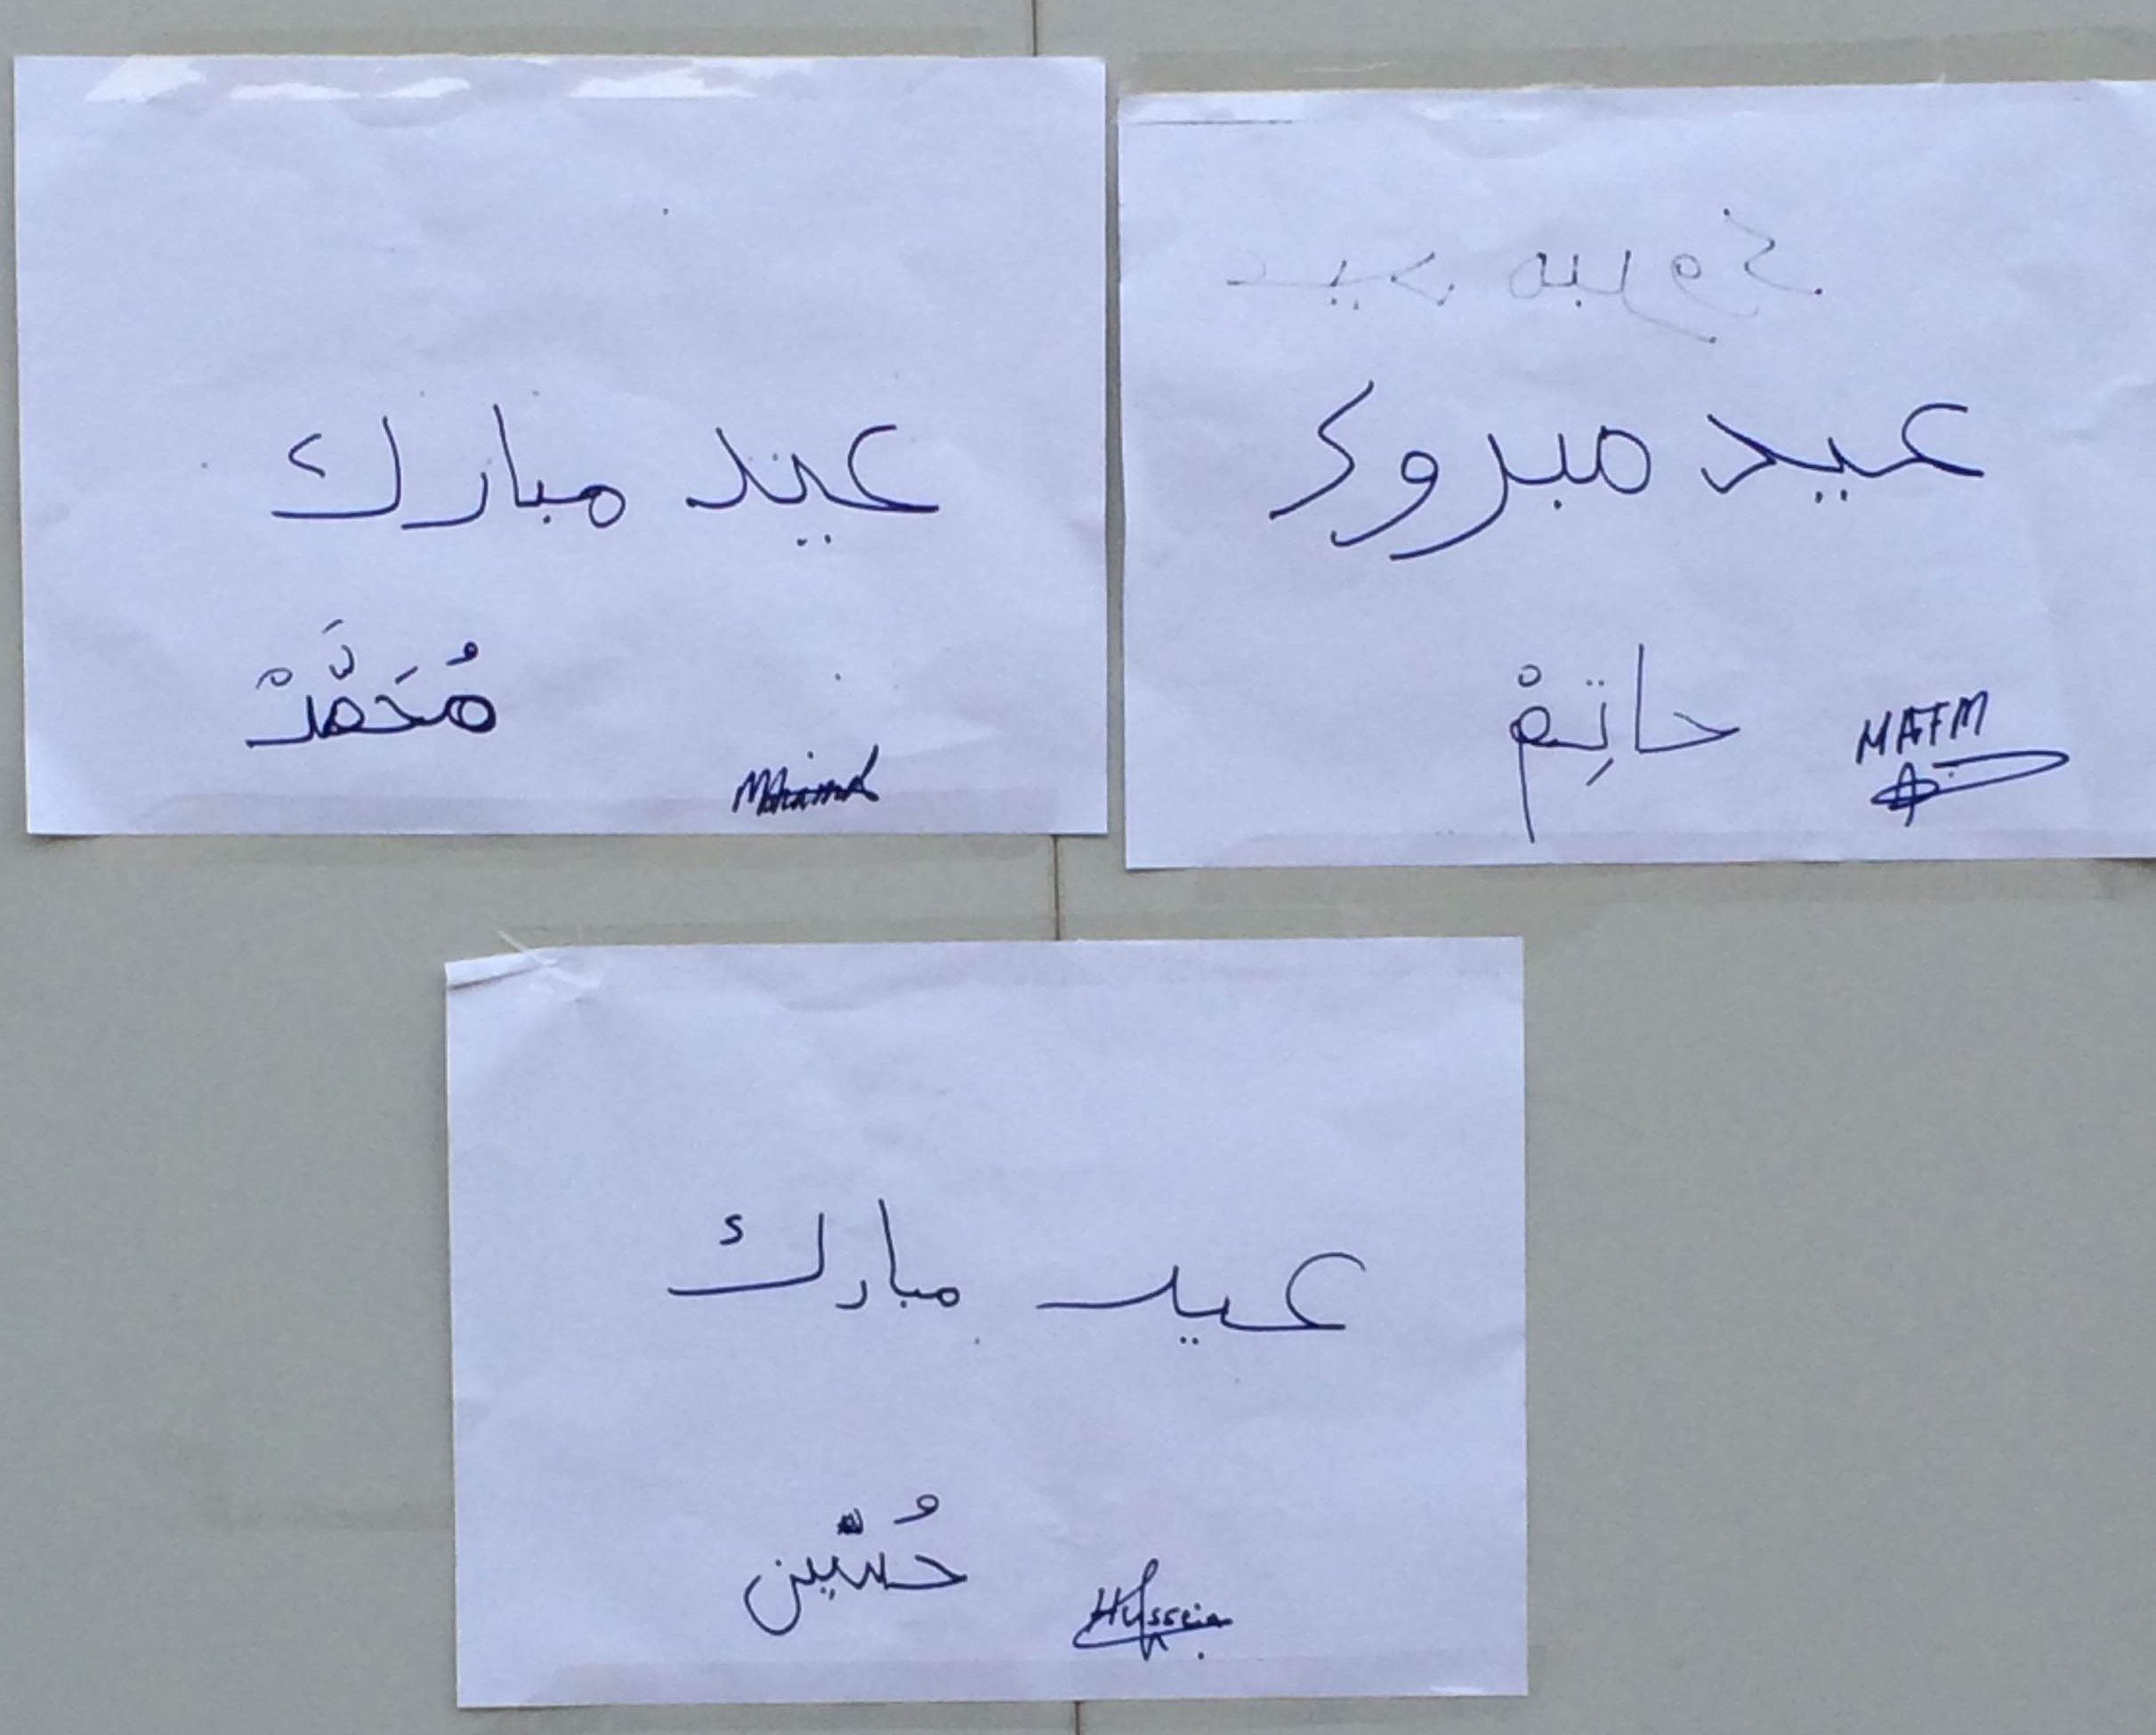 عيد مبارك
مُحَمَّدْ
عيد مبروك
حاتِمْ
HATM
عيد مبارك
حُسّين
Hussein